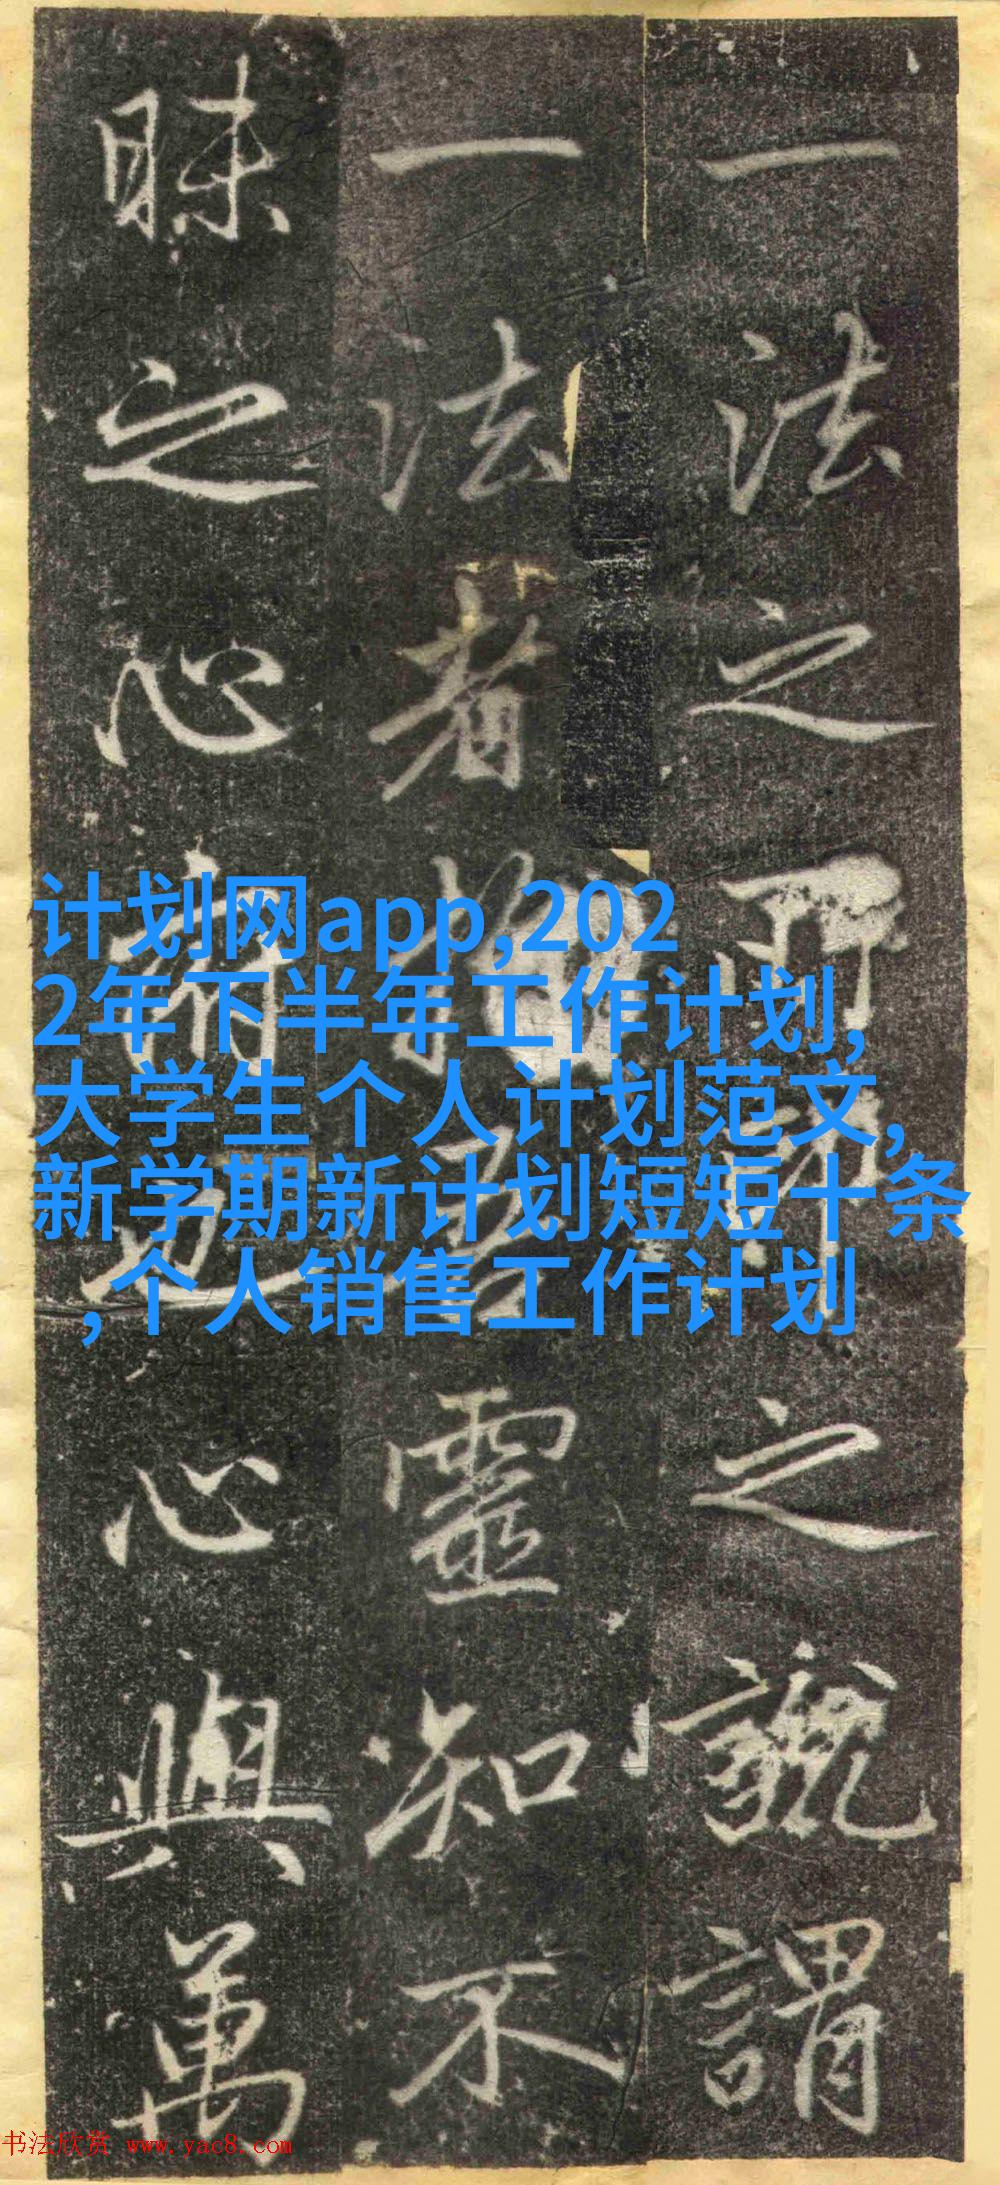 一法之所之謂
一法者靈知不
昧之心也心與萬
计划网app,202
2年下半年工作计划,
大学生个人计划范文,
新学期新计划短短十条
,个人销售工作计划
书法欣赏 www.yac8.com